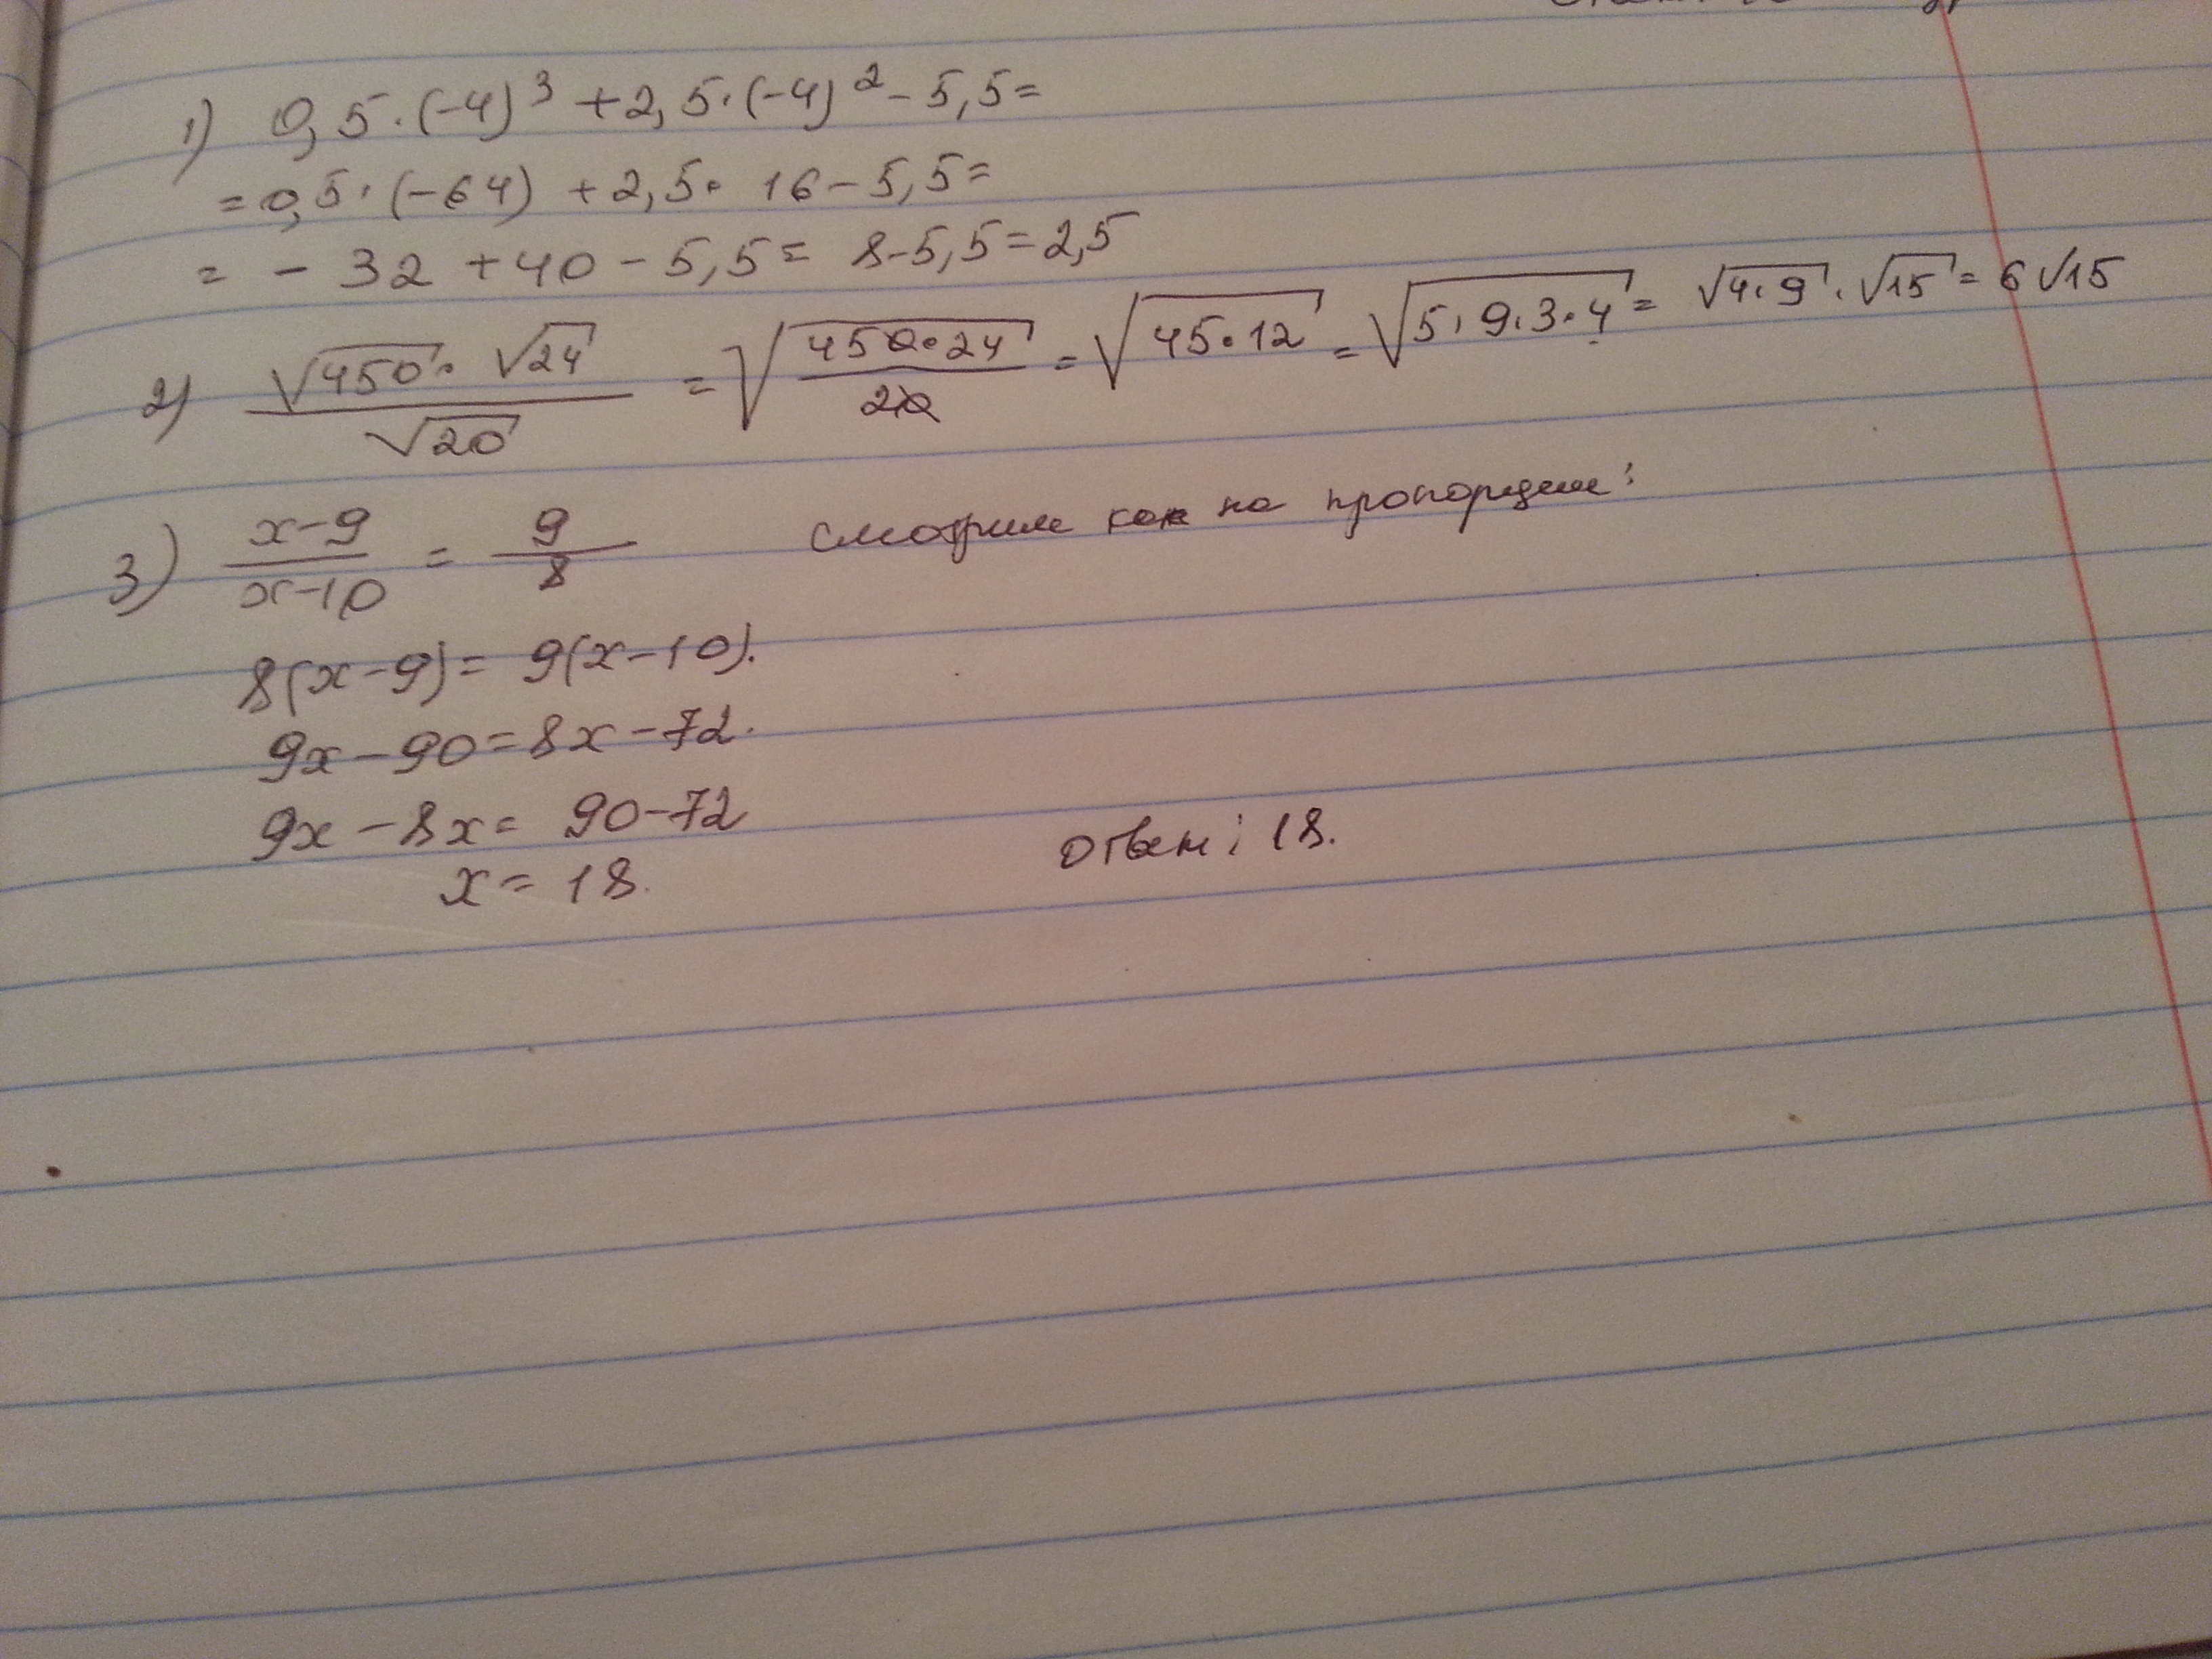 1) 0,5·(-4)³+2,5·(-4)²-5,5=
=0,5·(-64)+2,5·16-5,5=
=-32+40-5,5=8-5,5=2,5
2) √450·√24/√20=√(450·24/20)=√(45·12)=√(5·9·3·4)=√(4·9)·√15=6√15
3) (x-9)/(x-10)=9/8 смотрим как на пропорцию:
8(x-9)=9(x-10).
9x-90=8x-72.
9x-8x=90-72
x=18. Ответ: 18.